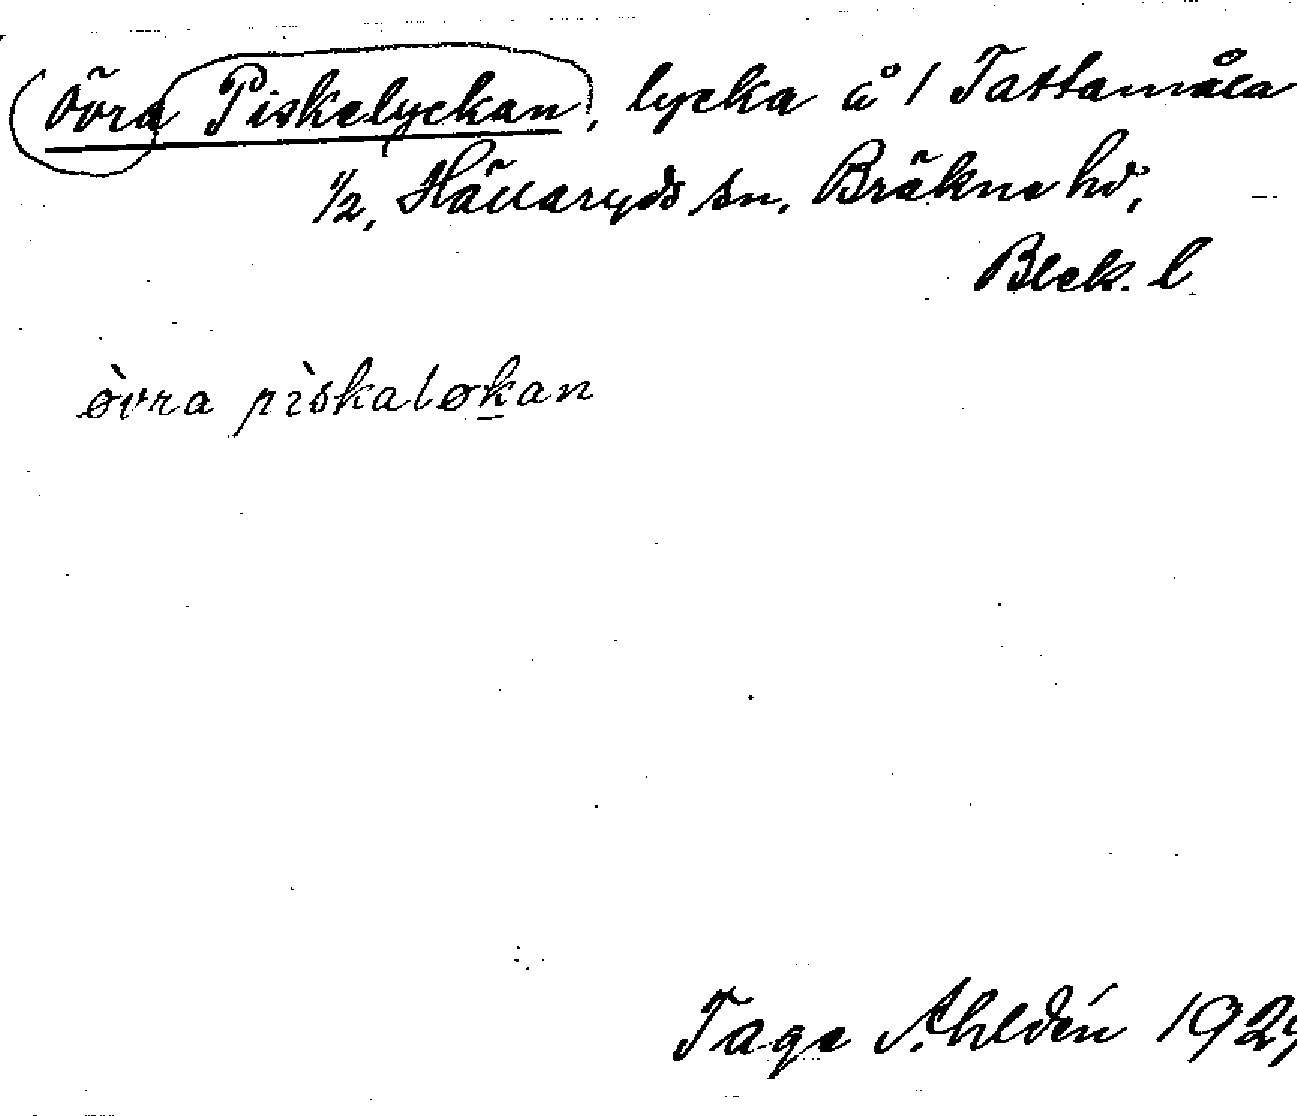 Övra Piskelyckan, lycka å 1 Tattamåla
1/2, Hällaryds sn, Bräkne hd,
Blek. l
òvra pìskaløkan
Tage Ahldén